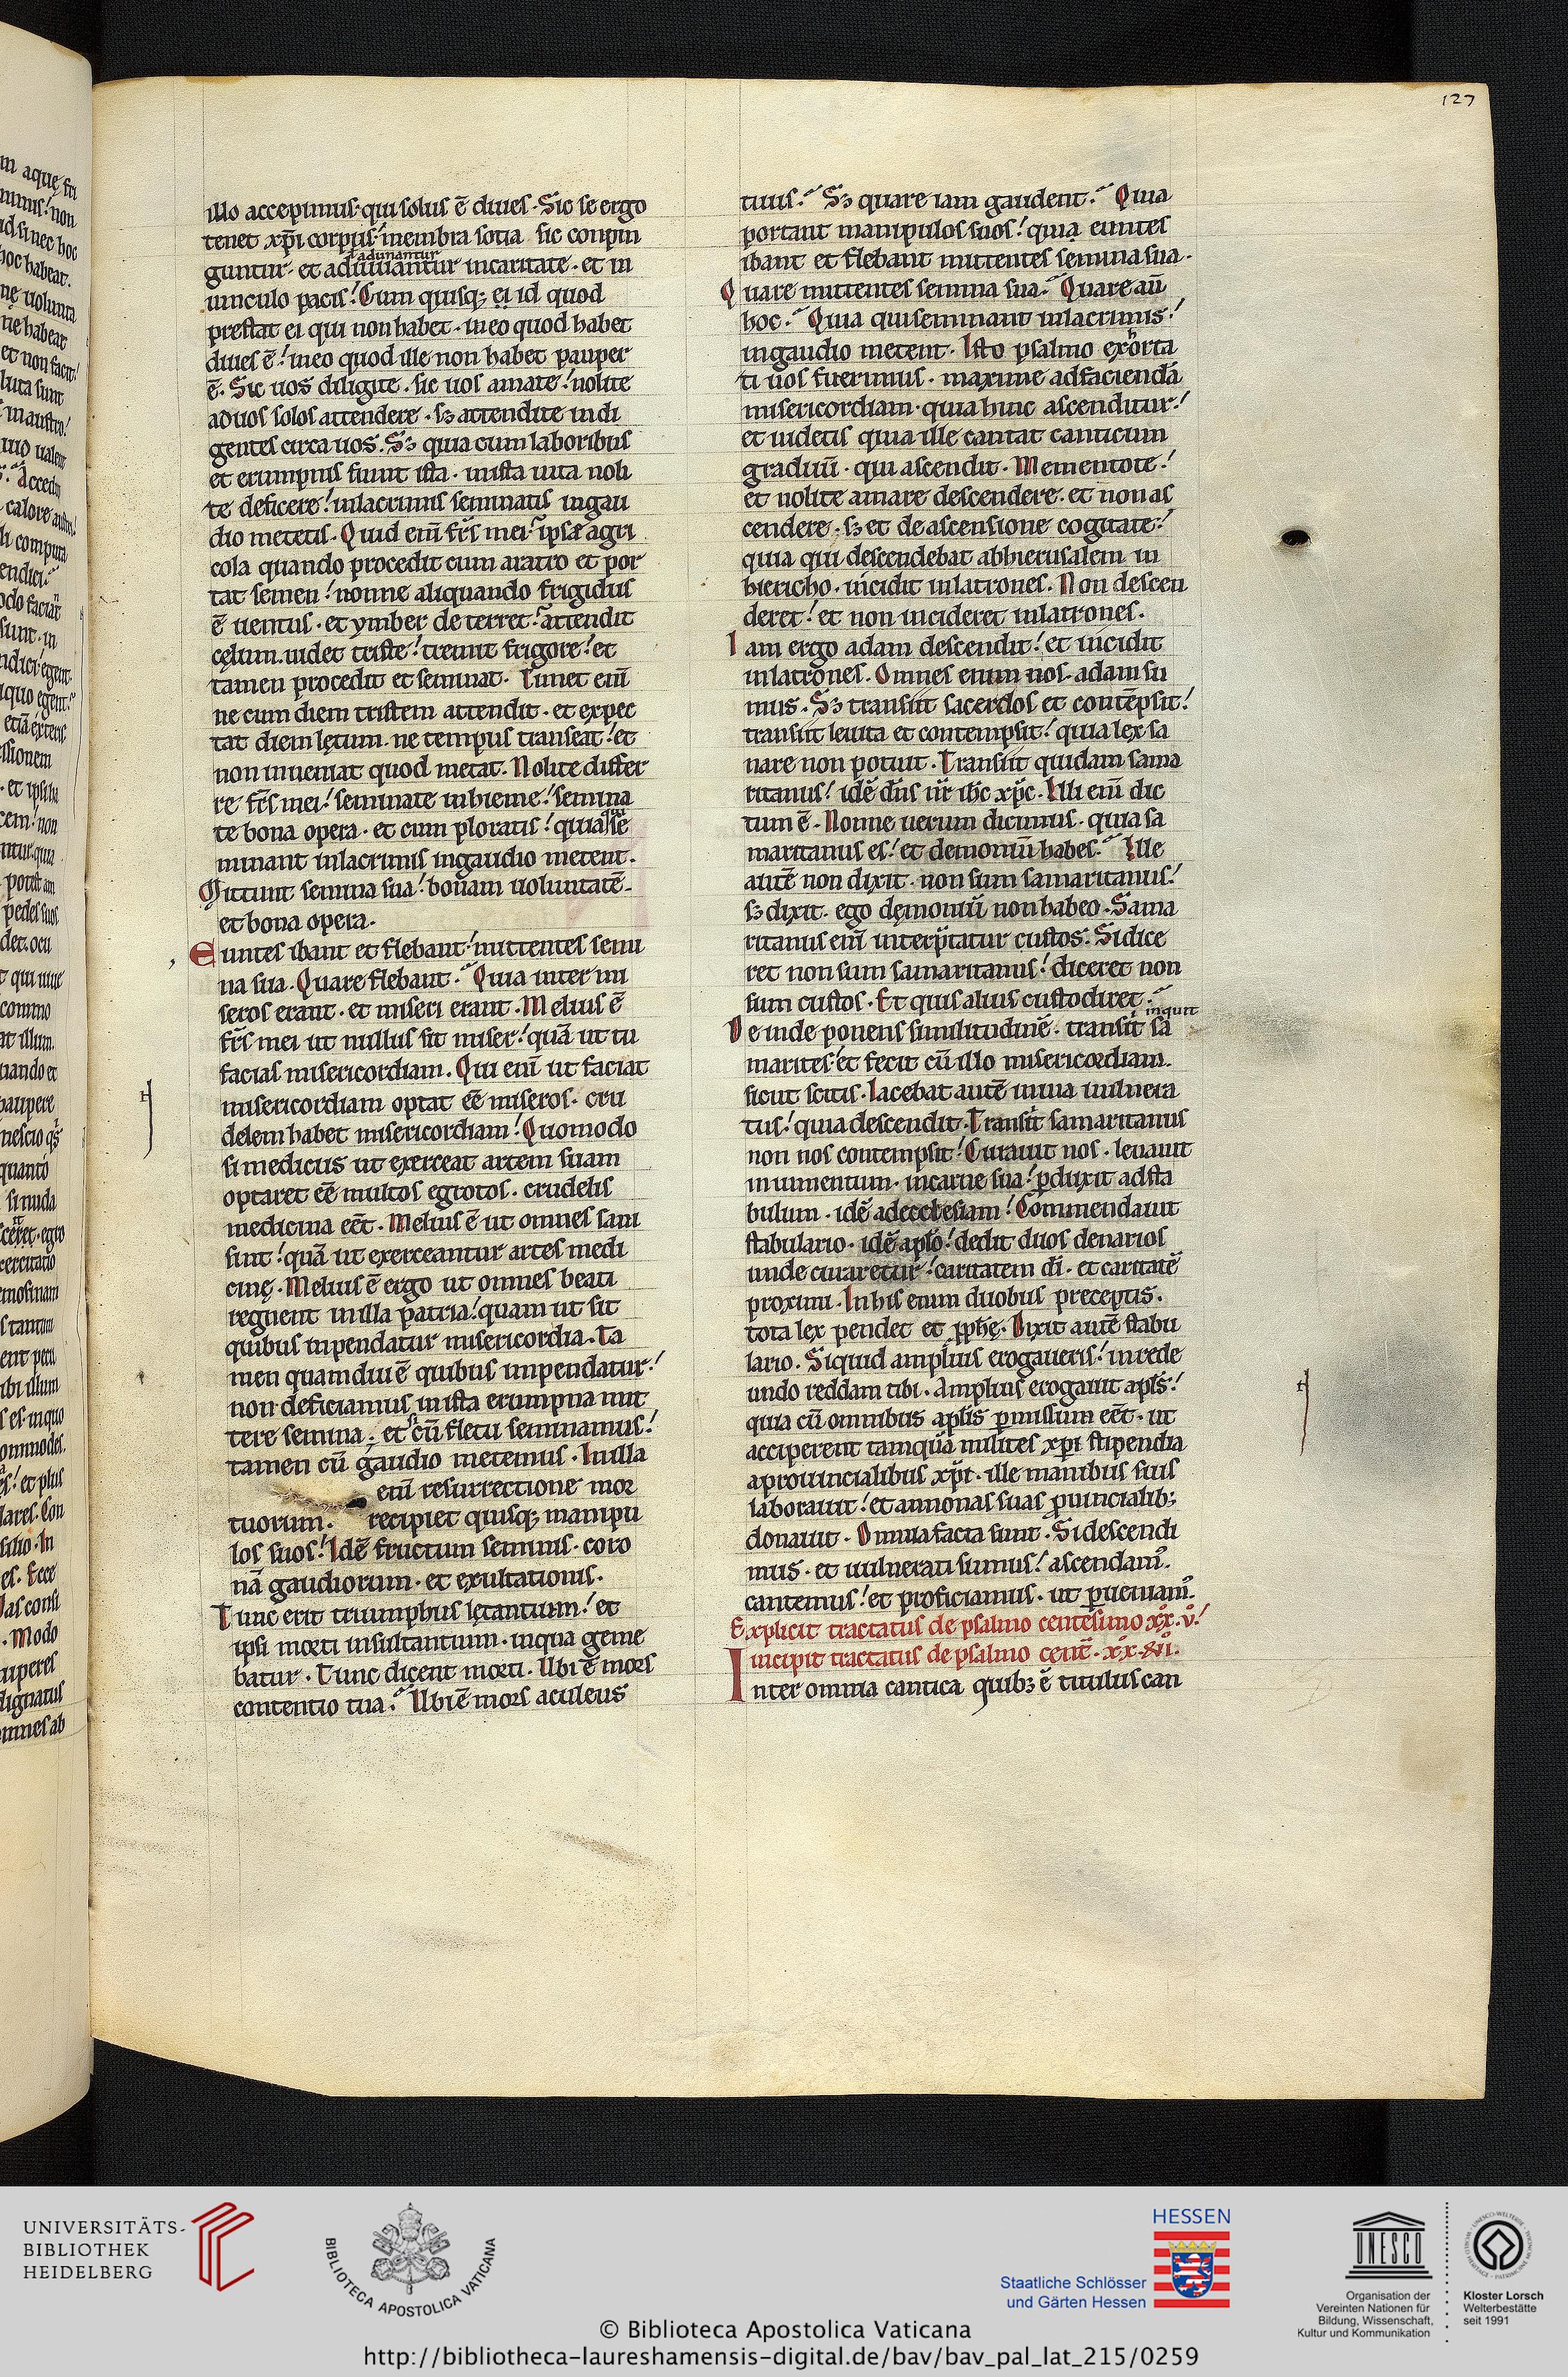 127
illo accepimus· qui solus ē diues· Sic se ergo
tenet xp̄i corpus· membra sotia sic conpin
ł adunantur
guntur· et adiuuantur in caritate· et in
uinculo pacis! Cum quisq; ei id quod
prestat ei qui non habet· in eo quod habet
diues ē! in eo quod ille non habet pauper
ē. Sic uos diligite· sic uos amate! nolite
ad uos solos attendere· sꝫ attendite indi
gentes circa uos. Sꝫ quia cum laboribus
et erumpnis fiunt ista· in ista uita noli
te deficere! in lacrimis seminatis in gau
dio metetis. Quid enī fr̄s mei? ipse agri
cola quando procedit cum aratro et por
tat semen! nonne aliquando frigidus
ē uentus· et ymber deterret? attendit
cęlum. uidet triste! tremit frigore! et
tamen procedit et seminat. Timet enī
ne cum diem tristem attendit· et expec
tat diem lętum· ne tempus transeat! et
non inueniat quod metat. Nolite differ
re fr̄s mei! seminate in hieme! semina
te bona opera· et cum ploratis! quia se
minant in lacrimis in gaudio metent.
Mittunt semina sua! bonam uoluntatē·
et bona opera.
Euntes ibant et flebant! mittentes semi
na sua. Quare flebant? Quia inter mi
seros erant· et miseri erant. Melius ē
fr̄s mei ut nullus sit miser! quā ut tu
facias misericordiam. Qui enī ut faciat
misericordiam optat eē miseros· cru
delem habet misericordiam! Quomodo
si medicus ut exerceat artem suam
optaret eē multos egrotos· crudelis
medicina eēt. Melius ē ut omnes sani
sint! quā ut exerceantur artes medi
cinę. Melius ē ergo ut omnes beati
regnent in illa patria! quam ut sit
quibus inpendatur misericordia. Ta
men quamdiu ē quibus impendatur!
non deficiamus in ista erumpna mit
tere semina; et si cū fletu seminamus!
tamen cū gaudio metemus. In illa
enī resurrectione mor
tuorum. recipiet quisq; manipu
los suos! Idē fructum seminis· coro
nā gaudiorum· et exultationis.
Tunc erit triumphus lętantium! et
ipsi morti insultantium· in qua geme
batur. Tunc dicent morti. Ubi ē mors
contentio tua? Ubi ē mors aculeus
tuus? Sꝫ quare iam gaudent? Quia
portant manipulos suos! quia euntes
ibant et flebant mittentes semina sua.
Quare mittentes semina sua? Quare aū
hoc? Quia qui seminant in lacrimis!
in gaudio metent. Isto psalmo exhorta
ti uos fuerimus· maxime ad faciendā
misericordiam· quia hinc ascenditur!
et uidetis quia ille cantat canticum
graduū· qui ascendit. Mementote!
et nolite amare descendere· et non as
cendere· sꝫ et de ascensione cogitate!
quia qui descendebat ab hierusalem in
hiericho· incidit in latrones. Non descen
deret! et non incideret in latrones.
Iam ergo adam descendit! et incidit
in latrones. Omnes enim nos· adam su
mus. Sꝫ transiit sacerdos et contēpsit!
transiit leuita et contempsit! quia lex sa
nare non potuit. Transiit quidam sama
ritanus! idē dn̄s nr̄ ihc̄ xp̄c. Illi enī dic
tum ē. Nonne uerum dicimus· quia sa
maritanus es! et demoniū habes? Ille
autē non dixit· non sum samaritanus!
sꝫ dixit· ego dęmoniū non habeo. Sama
ritanus enī interp̄tatur custos. Si dice
ret non sum samaritanus! diceret non
sum custos. Et quis alius custodiret?
inquit
Deinde ponens similitudinē· transiit sa
marites· et fecit cū illo misericordiam.
sicut scitis. Iacebat autē in uia uulnera
tus! quia descendit. Transiit samaritanus
non nos contempsit! Curauit nos· leuauit
in iumentum· in carne sua! pduxit ad sta
bulum· idē ad ecclesiam! Commendauit
stabulario· idē aplo! dedit duos denarios
unde curaretur! caritatem dī· et caritatē
proximi. In his enim duobus preceptis·
tota lex pendet et pphę. Dixit autē stabu
lario. Siquid amplius erogaueris! in rede
undo reddam tibi. Amplius erogauit apls!
quia cū omnibus aplis pmissum eēt· ut
acciperent tamquā milites xp̄i stipendia
a prouincialibus xp̄i· ille manibus suis
laborauit! et annonas suas puincialib;
donauit. Omnia facta sunt. Si descendi
mus· et uulnerati sumus! ascendam᾽.
cantemus! et proficiamus· ut pueniam᾽.
Explicit tractatus de psalmo centesimo xx.v!
Incipit tractatus de psalmo cent̄. xx.vi.
Inter omnia cantica quibꝫ ē titulus can
UNIVERSITÄTS-
BIBLIOTHEK
HEIDELBERG
BIBLIOTECA APOSTOLICA VATICANA
HESSEN
Staatliche Schlösser
und Gärten Hessen
UNESCO
Organisation der
Vereinten Nationen für
Bildung, Wissenschaft,
Kultur und Kommunikation
Kloster Lorsch
Welterbestätte
seit 1991
© Biblioteca Apostolica Vaticana
http://bibliotheca-laureshamensis-digital.de/bav/bav_pal_lat_215/0259